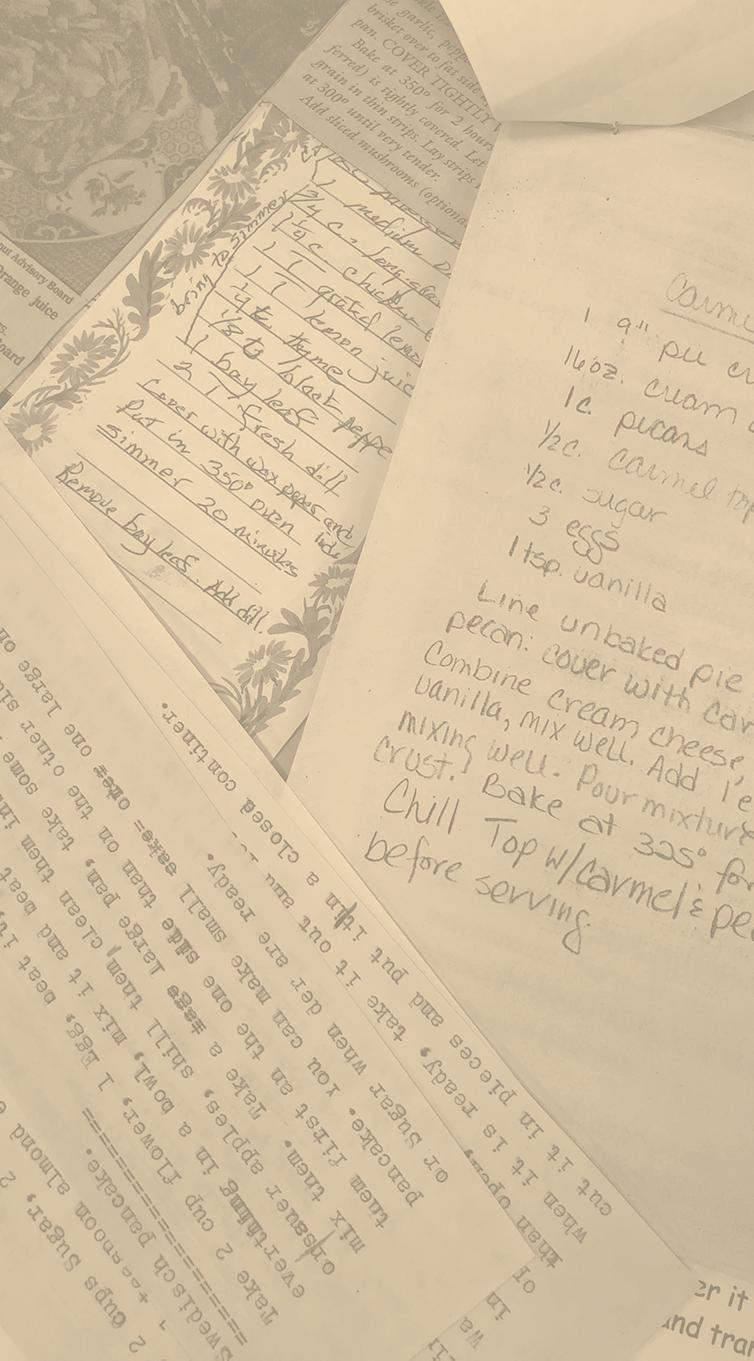 garlic, pepp
brisket over to fat side
pan. COVER TIGHTLY
Bake at 350° for 2 hours
ferred) is tightly covered. Let
grain in thin strips. Lay strips
at 300° until very tender.
Add sliced mushrooms (optional
put Advisory Board
Orange juice
oard
bring to simmer
1 medium
3/4 c. long grain
chicken
1 T grated lemon
1 T lemon juic
1/4 t. thyme
1/8 t. black peppe
1 bay leaf
2 T. fresh dill
Cover with wax paper and
Put in 350° oven lide
simmer 20 minutes
Remove bay leaf. Add dill.
Carme
1 9" pie cr
16 oz. cream
1c. pecans
1/2c. carmel top
1/2c. sugar
3 eggs
1 tsp. vanilla
Line unbaked pie
pecan: cover with car
Combine cream cheese,
vanilla, mix well. Add 1 e
mixing well. Pour mixture
crust. Bake at 325° for
Chill Top w/carmel & pe
before serving.
2 cups Sugar, 2
spoon almond
Swedisch pancake.
==================
Take 2 cup flower, 1 Egg, beat it,
everthing in a bowl, mix it and beat
or sauer apples, shill them, clean them in
mix them. Take a large pan, take some
them first an the one side than on the otner si
pancake. You can make one small cake= one= one large on
or Sugar when der are ready.
in
or
than open,
when it is ready, take it out and
cut it in pieces and put it in a closed continer.
er it
and tran